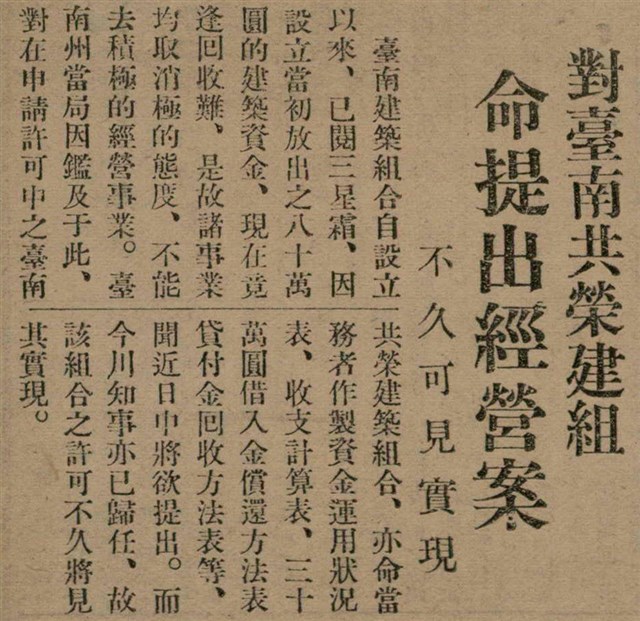 對臺南共榮建組
命提出經營案
不久可見實現
臺南建築組合自設立
以來、已閱三星霜、因
設立當初放出之八十萬
圓的建築資金、現在竟
逢回收難、是故諸事業
均取消極的態度、不能
去積極的經營事業。臺
南州當局因鑑及于此、
對在申請許可中之臺南
共榮建築組合、亦命當
務者作製資金運用狀況
表、收支計算表、三十
萬圓借入金償還方法表
貸付金回收方法表等、
聞近日中將欲提出。而
今川知事亦已歸任、故
該組合之許可不久將見
其實現。